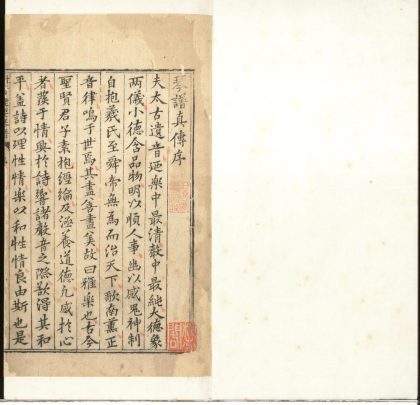 琴譜真傳序
夫太古遺音廼樂中最清敎中最純大德象
兩儀小德含品物明以順人事幽以感鬼神制
自抱羲氏至舜帝無為而治天下歌南薫正
音律鳴于世焉其盡善盡美故曰雅樂也古今
聖賢君子素抱經綸及涵養道德凢感於心
者蕟于情興於詩響諸教音之際歆得其和
平盖詩以理性情樂以和性情良由斯也是